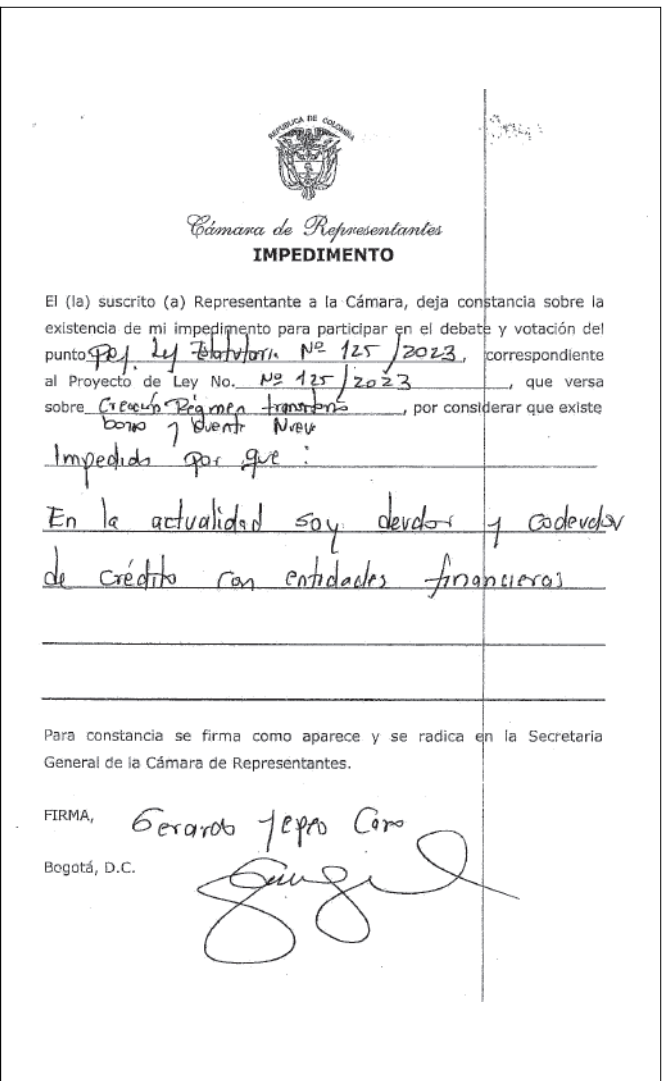 REPUBLICA DE COLOMBIA
Cámara de Representantes
IMPEDIMENTO
El (la) suscrito (a) Representante a la Cámara, deja constancia sobre la
existencia de mi impedimento para participar en el debate y votación del
punto Poy. Ley Estatutaria Nº 125/2023, correspondiente
al Proyecto de Ley No. Nº 125/2023, que versa
sobre Creación Régimen transitorio, por considerar que existe
borro y Cuenta Nueva
Impedido por que :
En la actualidad soy deudor y codeudor
de crédito con entidades financieras
Para constancia se firma como aparece y se radica en la Secretaria
General de la Cámara de Representantes.
FIRMA, Gerardo Yepes Caro
Bogotá, D.C.